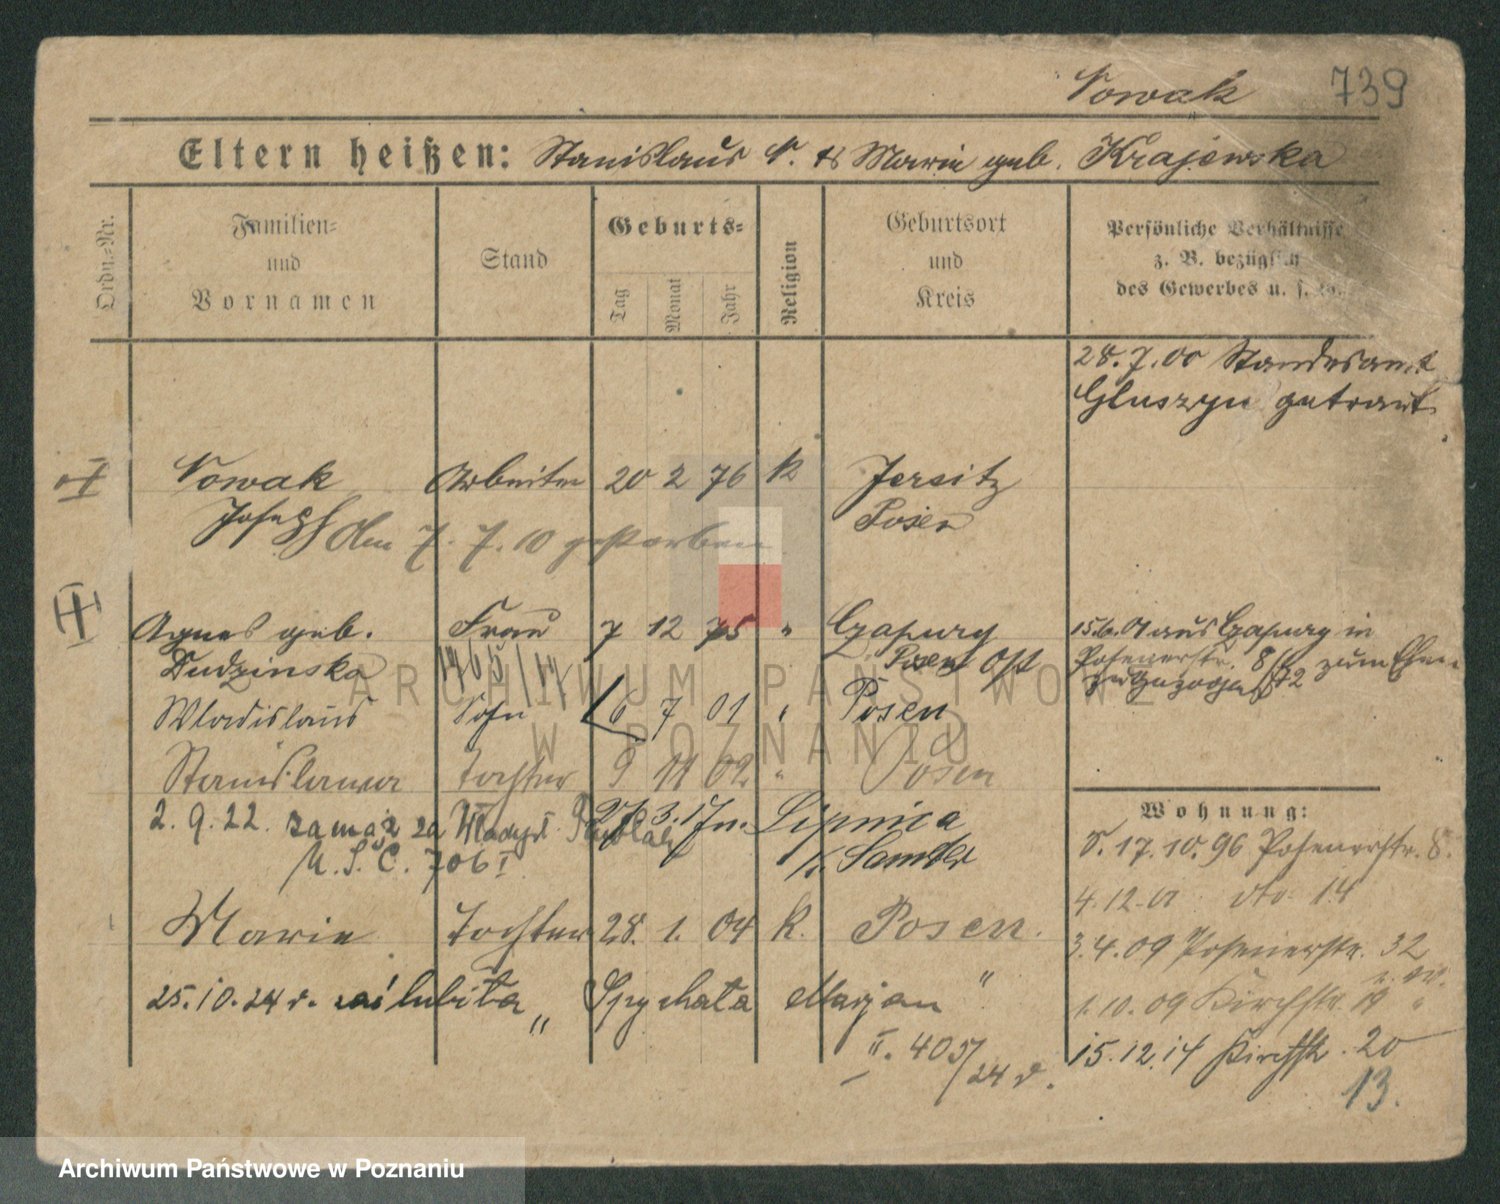 Nowak 739
Eltern heißen: Stanislaus N. & Marie geb. Krajewska
Ordn.-Nr.
Familien- und Vornamen
Stand
Geburts-
Tag Monat Jahr
Religion
Geburtsort und Kreis
Persönliche Verhältnisse
z. B. bezüglich
des Gewerbes u. s. w.
28.7.00 Standesamt
Gluszyn getraut
I Nowak Arbeiter 20 2 76 k Jersitz
Joseph den 7. 7. 10 gestorben Posen
Agnes geb. Frau 7 12 75 " Gapury 15.6.01 aus Gapury in
Dudzinska Posen Ost Posenerstr. 8 zum Ehem.
Wladislaus Sohn 6 7 01 " Posen
Stanislawa Tochter 9 11 02 " Posen
2. 9. 22. zamąż za Władysł. 27. 3. 17 n. Lipnica
U.S.C. 706 I K. Samter
Marie Tochter 28. 1. 04 k. Posen.
25.10.24 r. zaślubiła „ Spychała Marjan "
II. 405/24 r.
Wohnung:
V. 17.10.96 Posenerstr. 8.
4.12.01 dto. 14
3.4.09 Posenerstr. 32
1.10.09 Kirchstr. 19 "
15.12.14 Kirchstr. 20
13.
ARCHIWUM PAŃSTWOWE
W POZNANIU
Archiwum Państwowe w Poznaniu